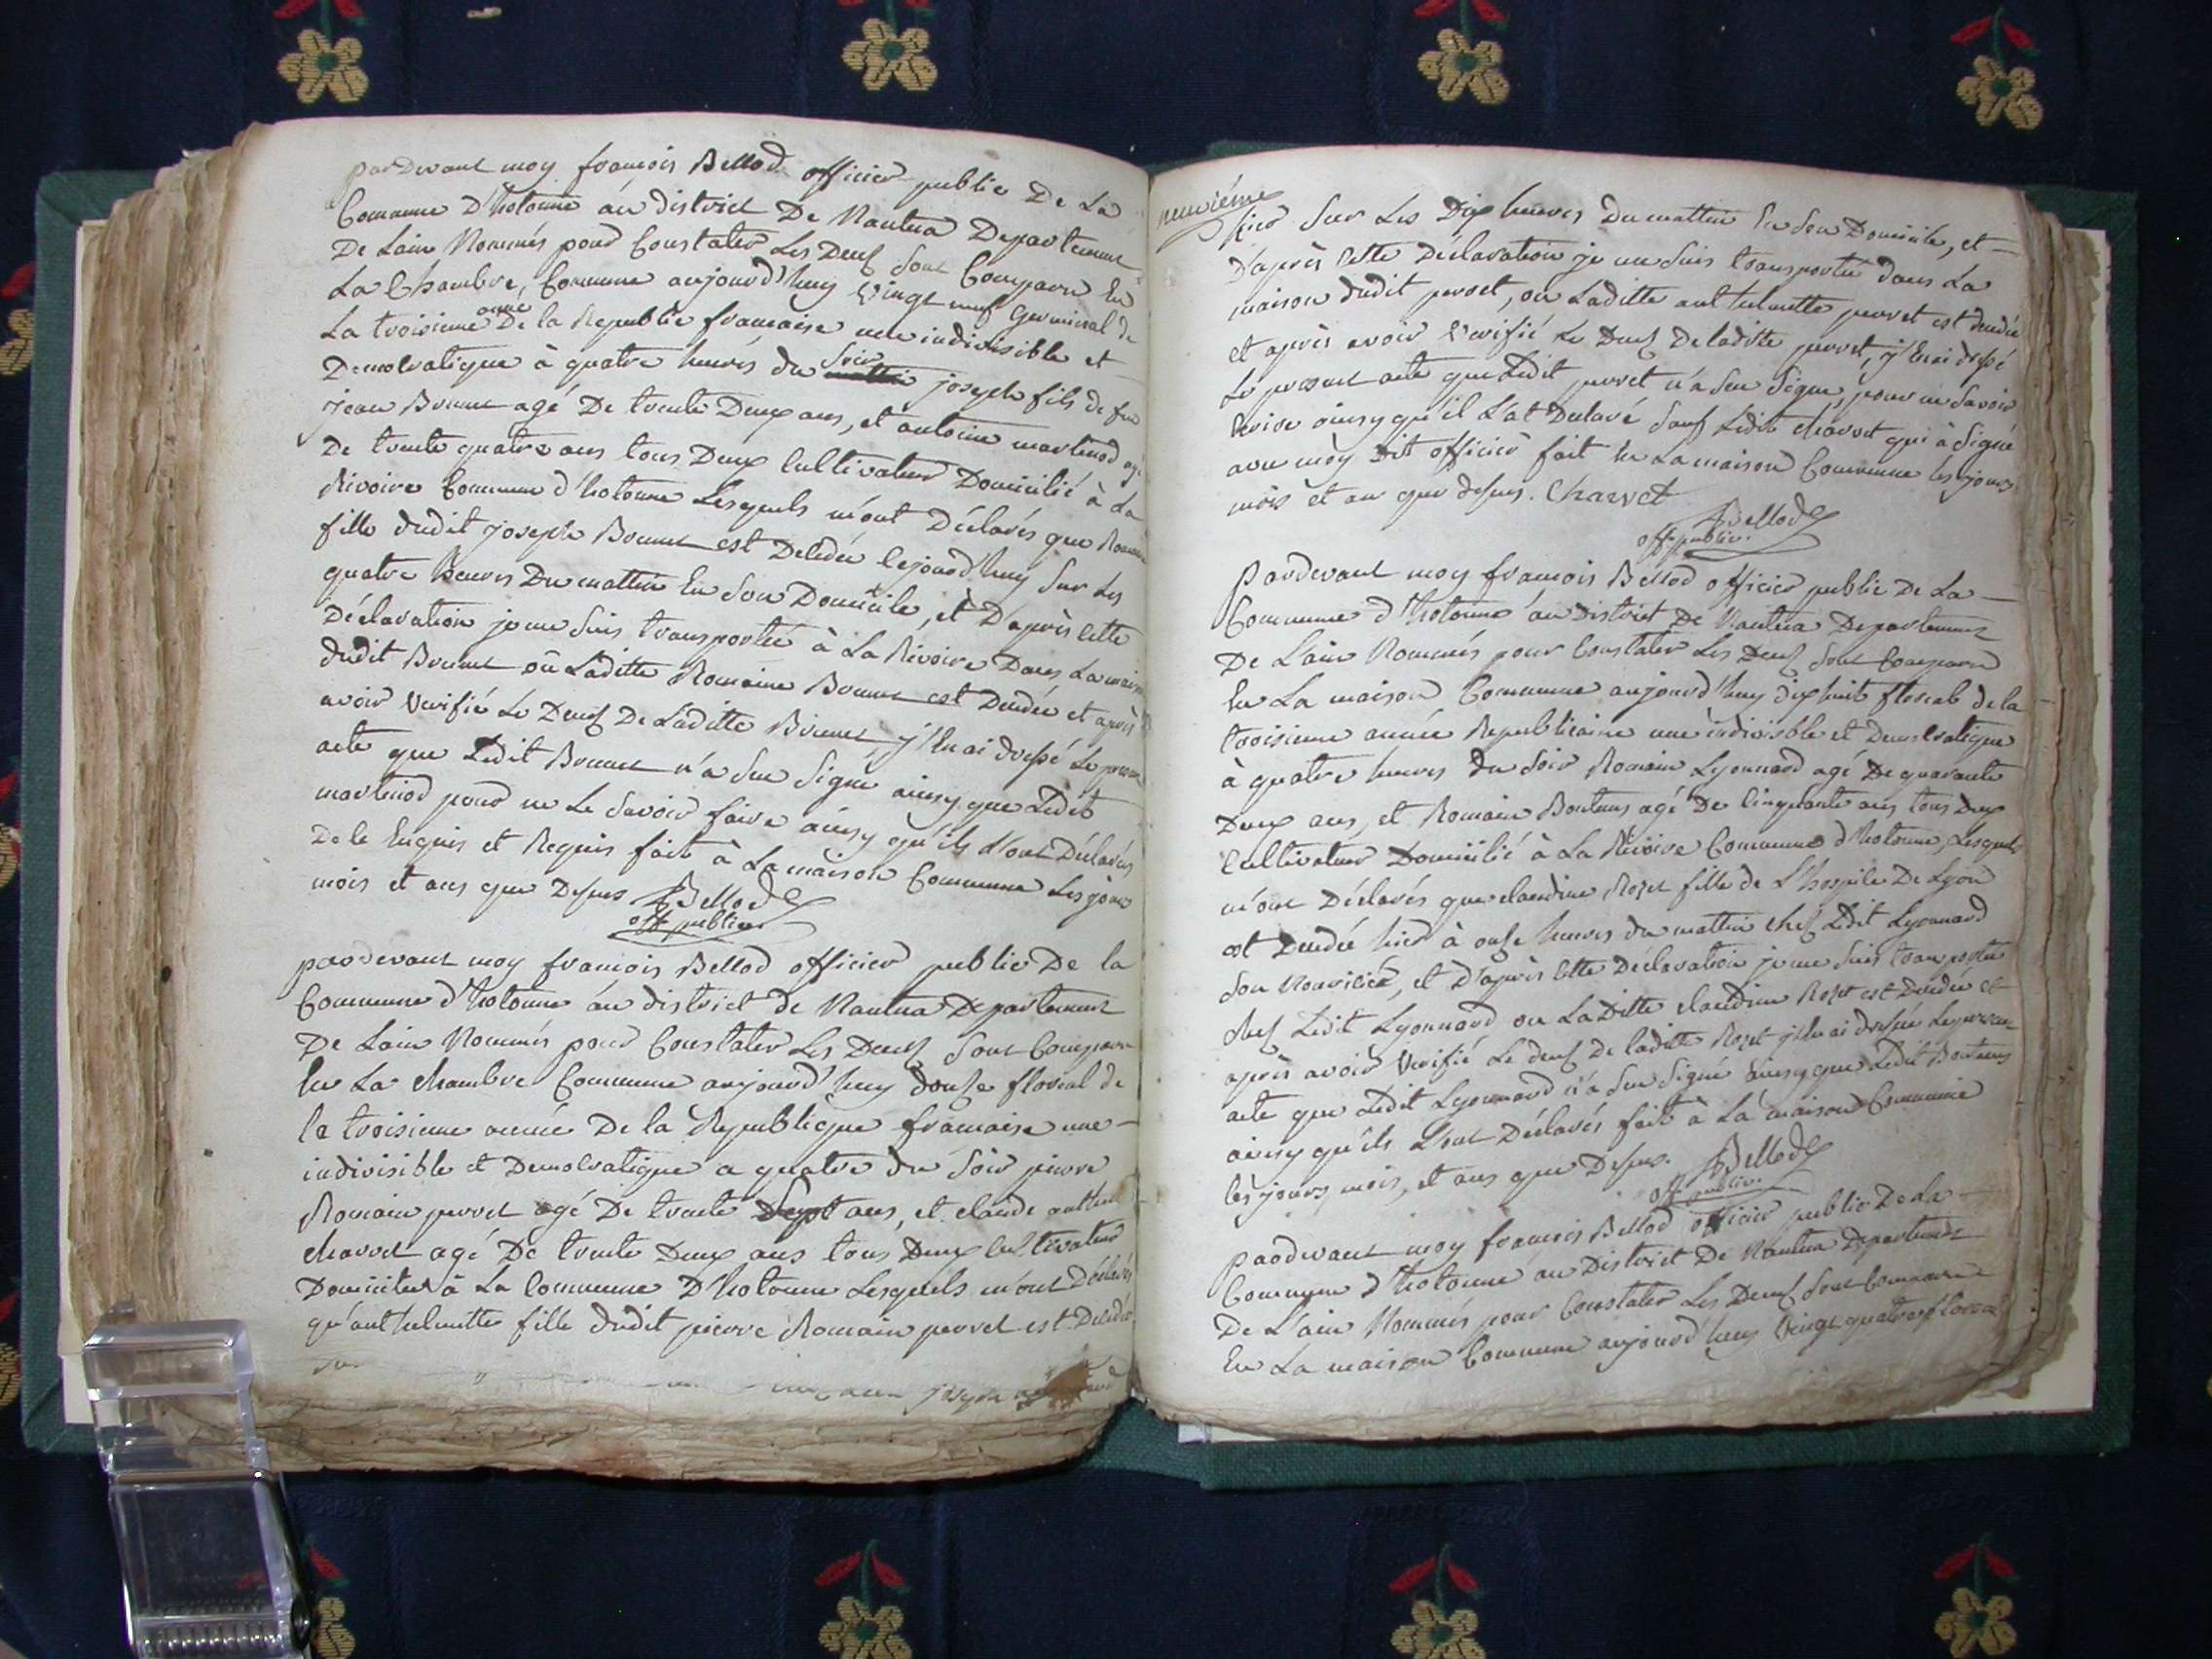 pardevant moy françois Bellod officier public De La
Commune D'hotonne au district De Nantua Departement
De Lain Nommés pour Constater Les Deces sont Comparu En
La Chambre, Commune aujourd'huy vingt neuf Germinal de
La troisieme année De la Republic francaise une indivisible et
Democratique à quatre heures du soir joseph fils de feu
jean Brunet agé De trente Deux ans, et antoine martinod agé
De trente quatre ans tous Deux Cultivateur Domicilié à La
Rivoire Commune d'hotonne Lesquels m'ont Déclarés que Romaine
fille dudit joseph Brunet est Decedée Cejourd'huy sur Les
quatre heures Du mattin En son Domicile, et D'après Cette
Déclaration je me suis transportée à La Rivoire Dans La maison
dudit Brunet ou Laditte Romaine Brunet est Decedée et après
avoir verifié Le Deces De Laditte Brunet j'En ai dressé Le present
acte que Ledit Brunet n'a seu signé ainsy que Ledit
martinod pour ne Le savoir faire ainsy qu'ils L'ont Déclarés
De le Enquis et Requis fait à La maison Commune Les jours
mois et ans que Dessus Bellod
off. public
pardevant moy francois Bellod officier public De la
Commune d'hotonne au district de Nantua Departement
De Lain Nommés pour Constater Les Deces sont Comparu
En La chambre Commune aujourd'huy douze floreal de
la troisieme année De la Republique francaise une
indivisible et Democratique a quatre du soir pierre
Romain perret agé De trente Sept ans, et claude anthelme
charvet agé De trente Deux ans tous Deux Cultivateur
Domicilier à La Commune D'hotonne Lesquels m'ont Déclarés
qu'anthelmette fille dudit pierre Romain perret est Decedée
joseph
neuvième
hier sur Les Dix heures Du mattin En son Domicile, et
D'après Cette Déclaration je me suis transportée dans La
maison dudit perret, ou Laditte anthelmette perret est decedée
et après avoir verifié Le Deces De laditte perret, j'En ai dressé
Le present acte que Ledit perret n'a seu signe, pour ne savoir
Ecrire ainsy qu'il L'at Declaré sauf Ledit charvet qui à signé
avec moy Dit officier fait En La maison Commune les jours
mois et an que dessus. Charvet
Bellod
off. public.
Pardevant moy françois Bellod officier public De La
Commune d'hotonne au District De Nantua Departement
De L'ain Nommés pour Constater Les Deces sont Comparu
En La maison Commune aujourd'huy dixhuit floreal de la
troisieme année Republicaine une indivisble et Democratique
à quatre heures du soir Romain Lyonnard agé De quarante
Deux ans, et Romain Bontems agé De Cinquante ans tous deux
Cultivateur Domicilié à La Rivoire Commune d'hotonne, Lesquels
m'ont Déclarés que claudine Rozet fille de L'hospile De Lyon
est Decedée hier à onze heures du mattin chez Ledit Lyonnard
son Nouricier, et D'après Cette Declaration je me suis transportée
chez Ledit Lyonnard ou La Ditte claudine Rozet est Decedée et
après avoir verifié Le deces De laditte Rozet j'En ai dressée Le present
acte que Ledit Lyonnard n'a seu signé ainsy que Ledit Bontems
ainsy qu'ils L'ont Déclarés fait à La maison Commune
les jours, mois, et ans que Dessus. Bellod
off. public.
Pardevant moy francois Bellod officier public De La
Commune d'hotonne au District De Nantua Departement
De L'ain Nommés pour Constater Les Deces sont Comparu
En La maison Commune aujourd'huy vingt quatre floreal